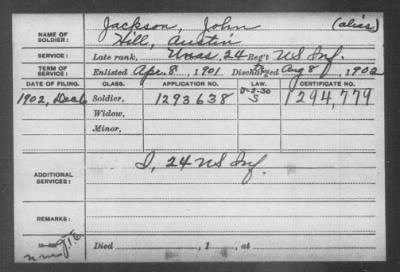 Jackson, John (alias)
NAME OF SOLDIER: Hill, Austin
SERVICE: Late rank, Unas, 24 Reg't US Inf.
TERM OF SERVICE: Enlisted Apr. 8, 1901 Discharged Aug 8, 1902
DATE OF FILING. CLASS. APPLICATION NO. LAW. CERTIFICATE NO.
1902, Dec 6 Soldier, 1293638 S 1294,779
Widow,
Minor,
ADDITIONAL SERVICES: I, 24 US Inf.
REMARKS:
Died , 1 , at